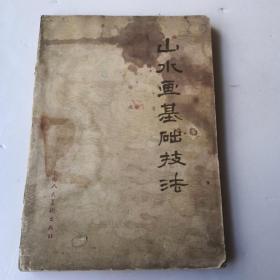 山水画基础技法
人民美術出版社